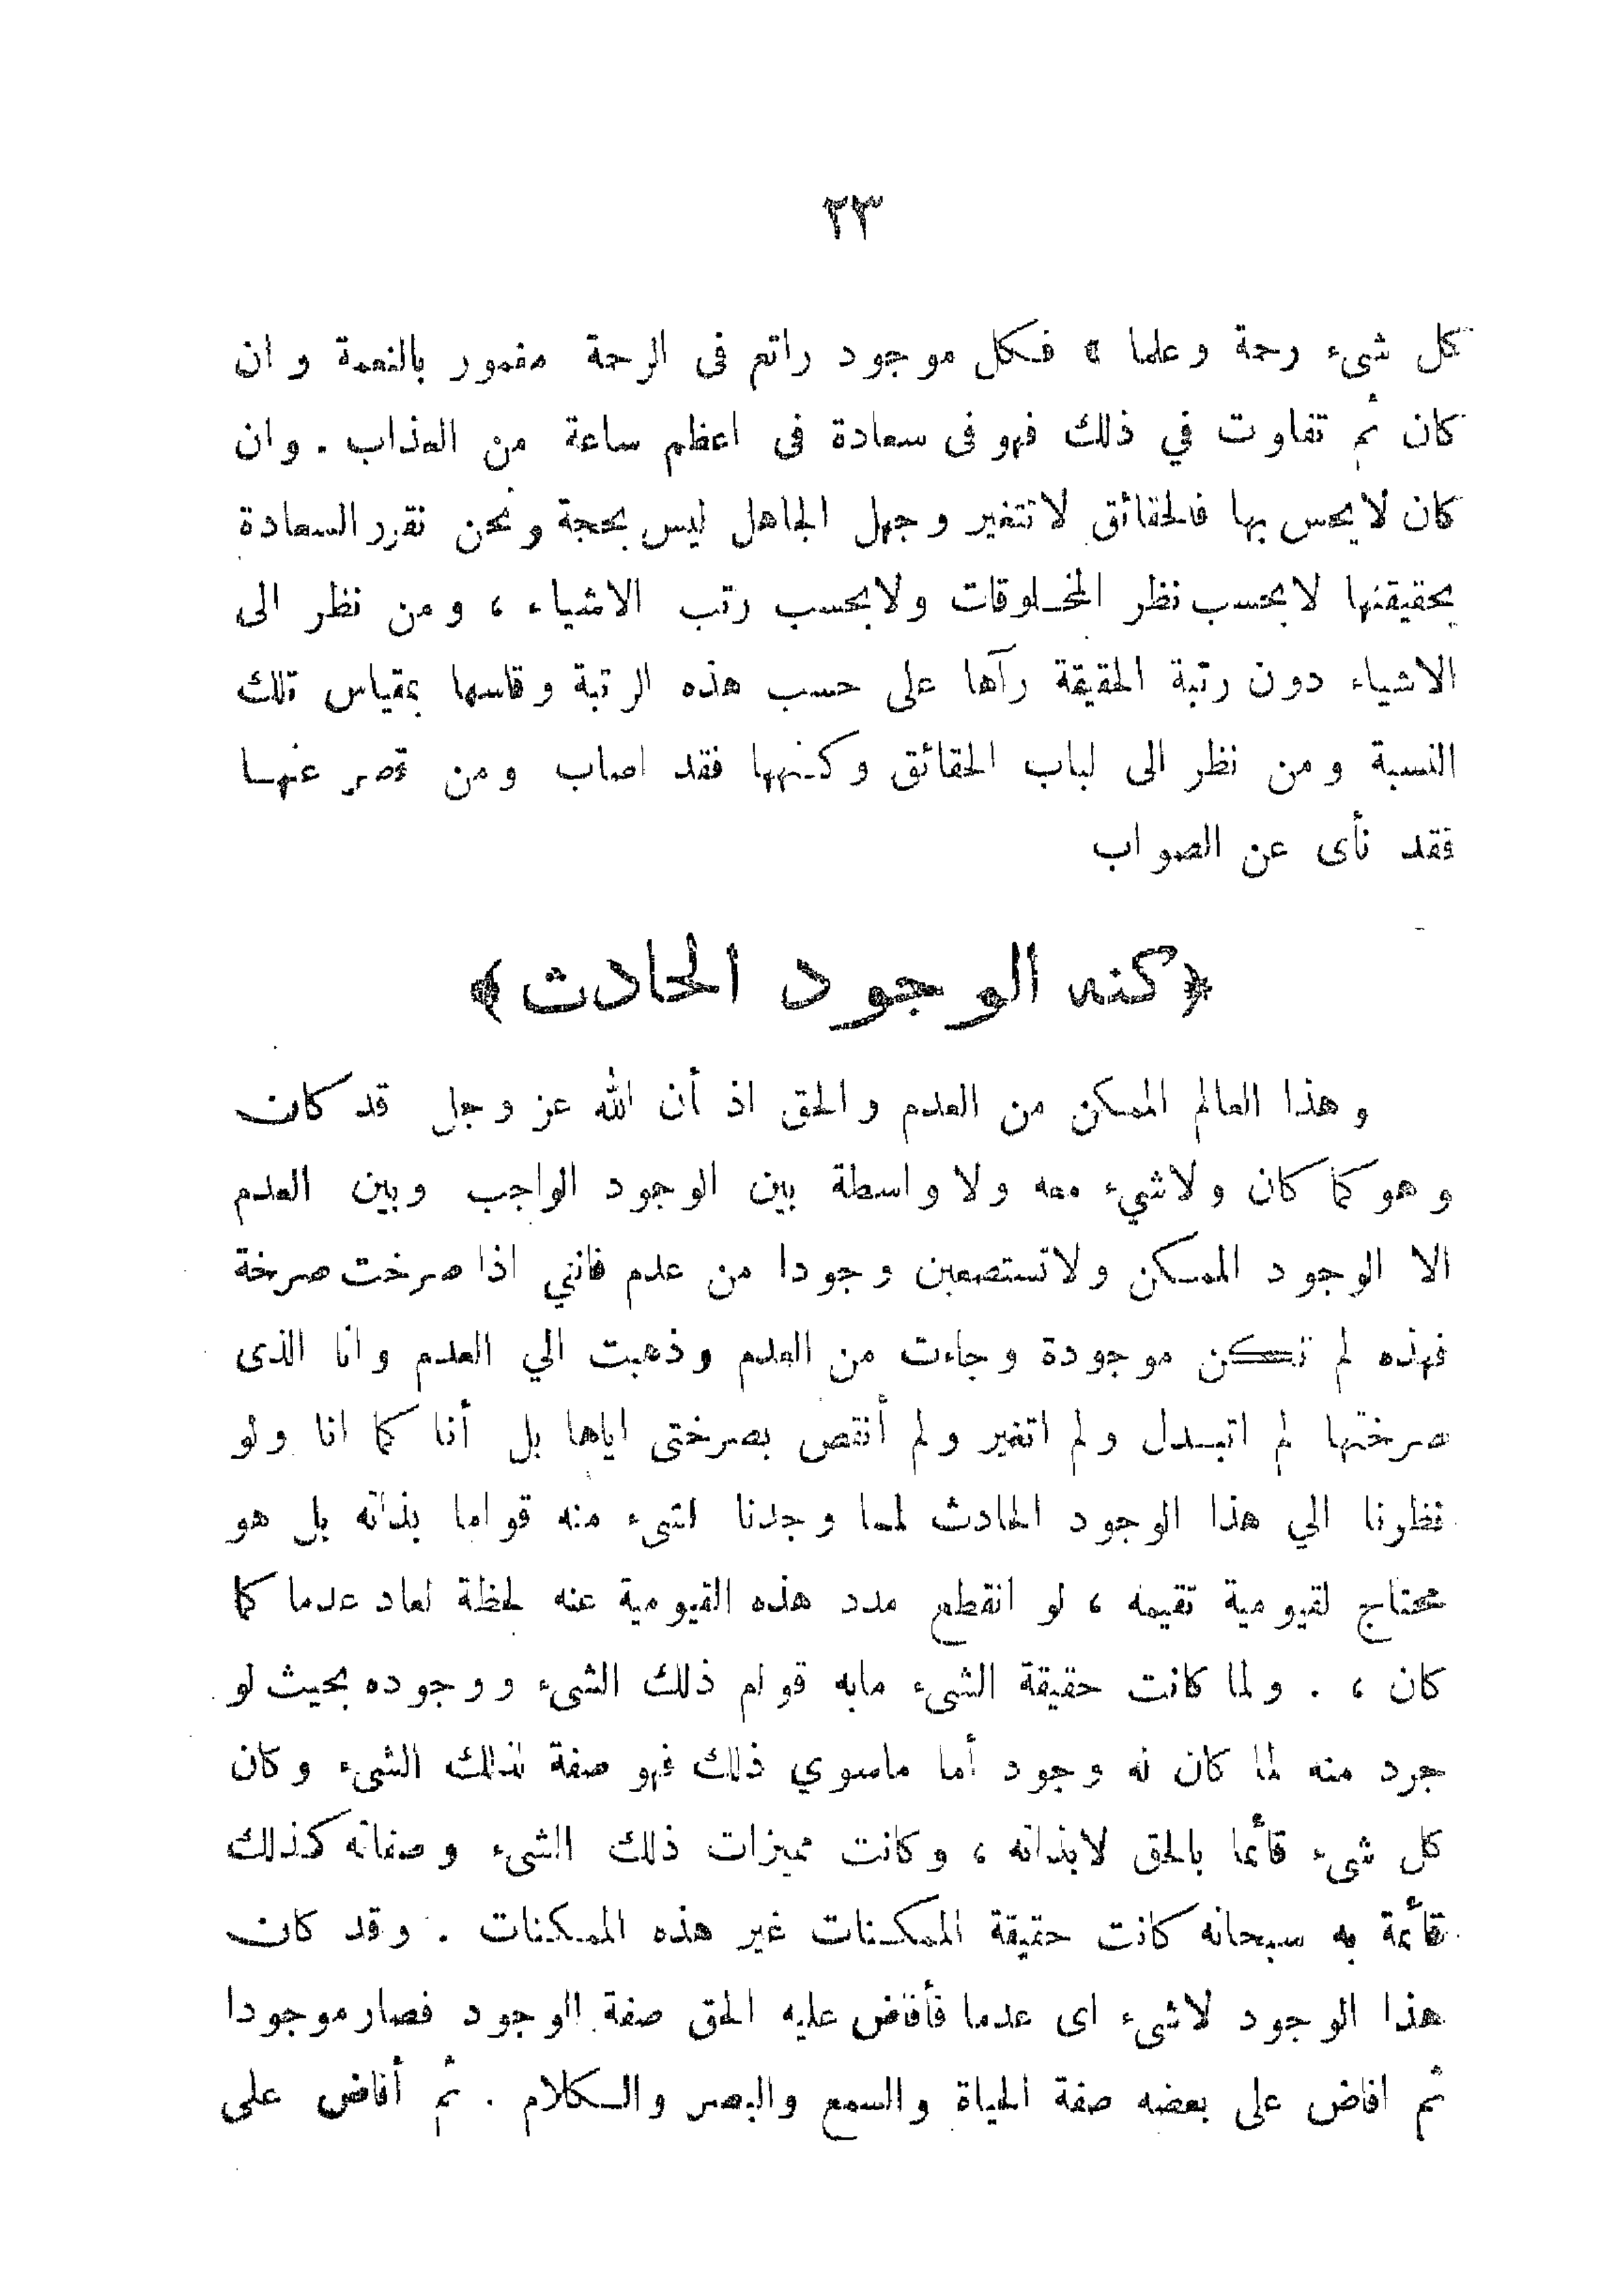 ٢٣
كل شىء رحمة وعلما » فكل موجود راتع فى الرحمة مغمور بالنعمة وان
كان ثم تفاوت في ذلك فهو فى سعادة فى اعظم ساعة من العذاب . وان
كان لا يحس بها فالحقائق لا تتغير وجهل الجاهل ليس بحجة ونحن نقرر السعادة
بحقيقتها لا بحسب نظر المخلوقات ولا بحسب رتب الاشياء ، ومن نظر الى
الاشياء دون رتبة الحقيقة رآها على حسب هذه الرتبة وقاسها بمقياس تلك
النسبة ومن نظر الى لباب الحقائق وكنهها فقد اصاب ومن قصر عنها
فقد نأى عن الصواب
﴿كنه الوجود الحادث﴾
وهذا العالم الممكن من العدم والحق اذ أن الله عز وجل قد كان
وهو كما كان ولاشيء معه ولا واسطة بين الوجود الواجب وبين العدم
الا الوجود الممكن ولا تستصعبن وجودا من عدم فانني اذا صرخت صرخة
فهذه لم تكن موجودة وجاءت من العدم وذهبت الي العدم وانا الذى
صرختها لم اتبدل ولم اتغير ولم أنتقص بصرختى اياها بل أنا كما انا ولو
نظرنا الي هذا الوجود الحادث لما وجدنا لشىء منه قواما بذاته بل هو
محتاج لقيومية تقيمه ، لو انقطع مدد هذه القيومية عنه لحظة لعاد عدما كما
كان ، . ولما كانت حقيقة الشىء مابه قوام ذلك الشىء ووجوده بحيث لو
جرد منه لما كان له وجود أما ماسوي ذلك فهو صفة لذلك الشىء وكان
كل شىء قائما بالحق لا بذاته ، وكانت مميزات ذلك الشىء وصفاته كذلك
قائمة به سبحانه كانت حقيقة الممكنات غير هذه الممكنات . وقد كان
هذا الوجود لاشىء اى عدما فأفاض عليه الحق صفة الوجود فصار موجودا
ثم افاض على بعضه صفة الحياة والسمع والبصر والكلام . ثم أفاض على